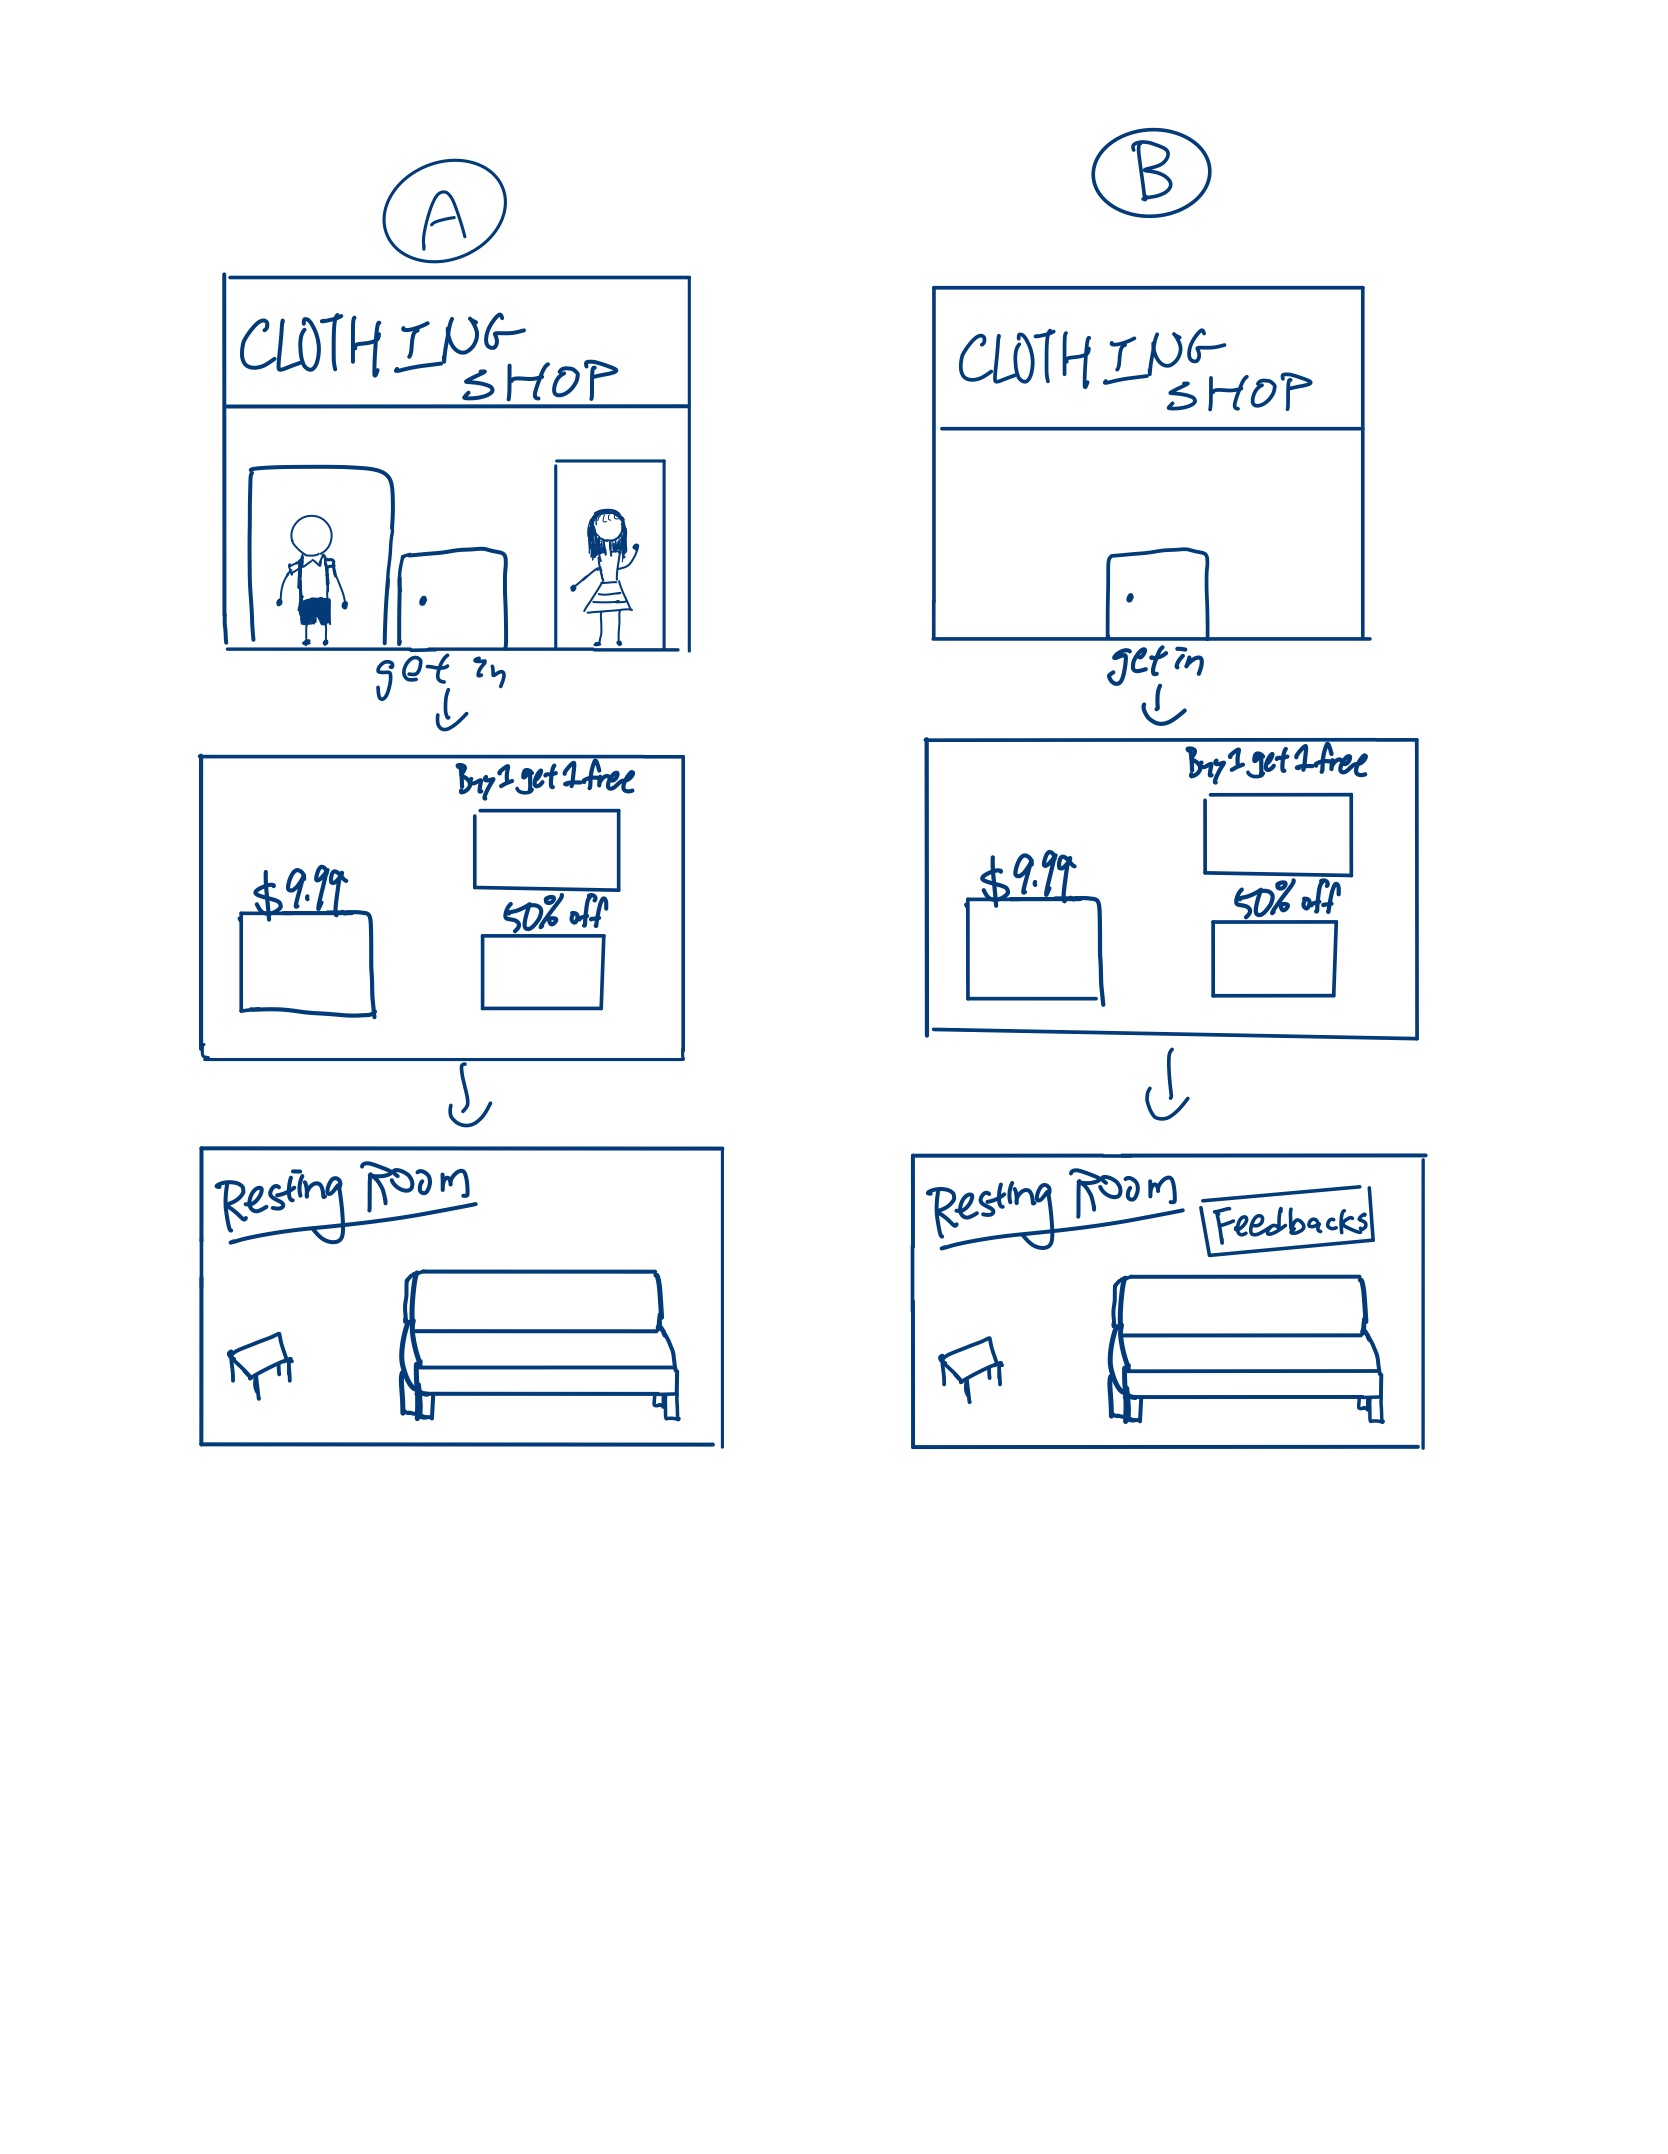 A
CLOTHING
SHOP
get in
Buy 1 get 1 free
$9.99
50% off
Resting Room
B
CLOTHING
SHOP
get in
Buy 1 get 1 free
$9.99
50% off
Resting Room
Feedbacks